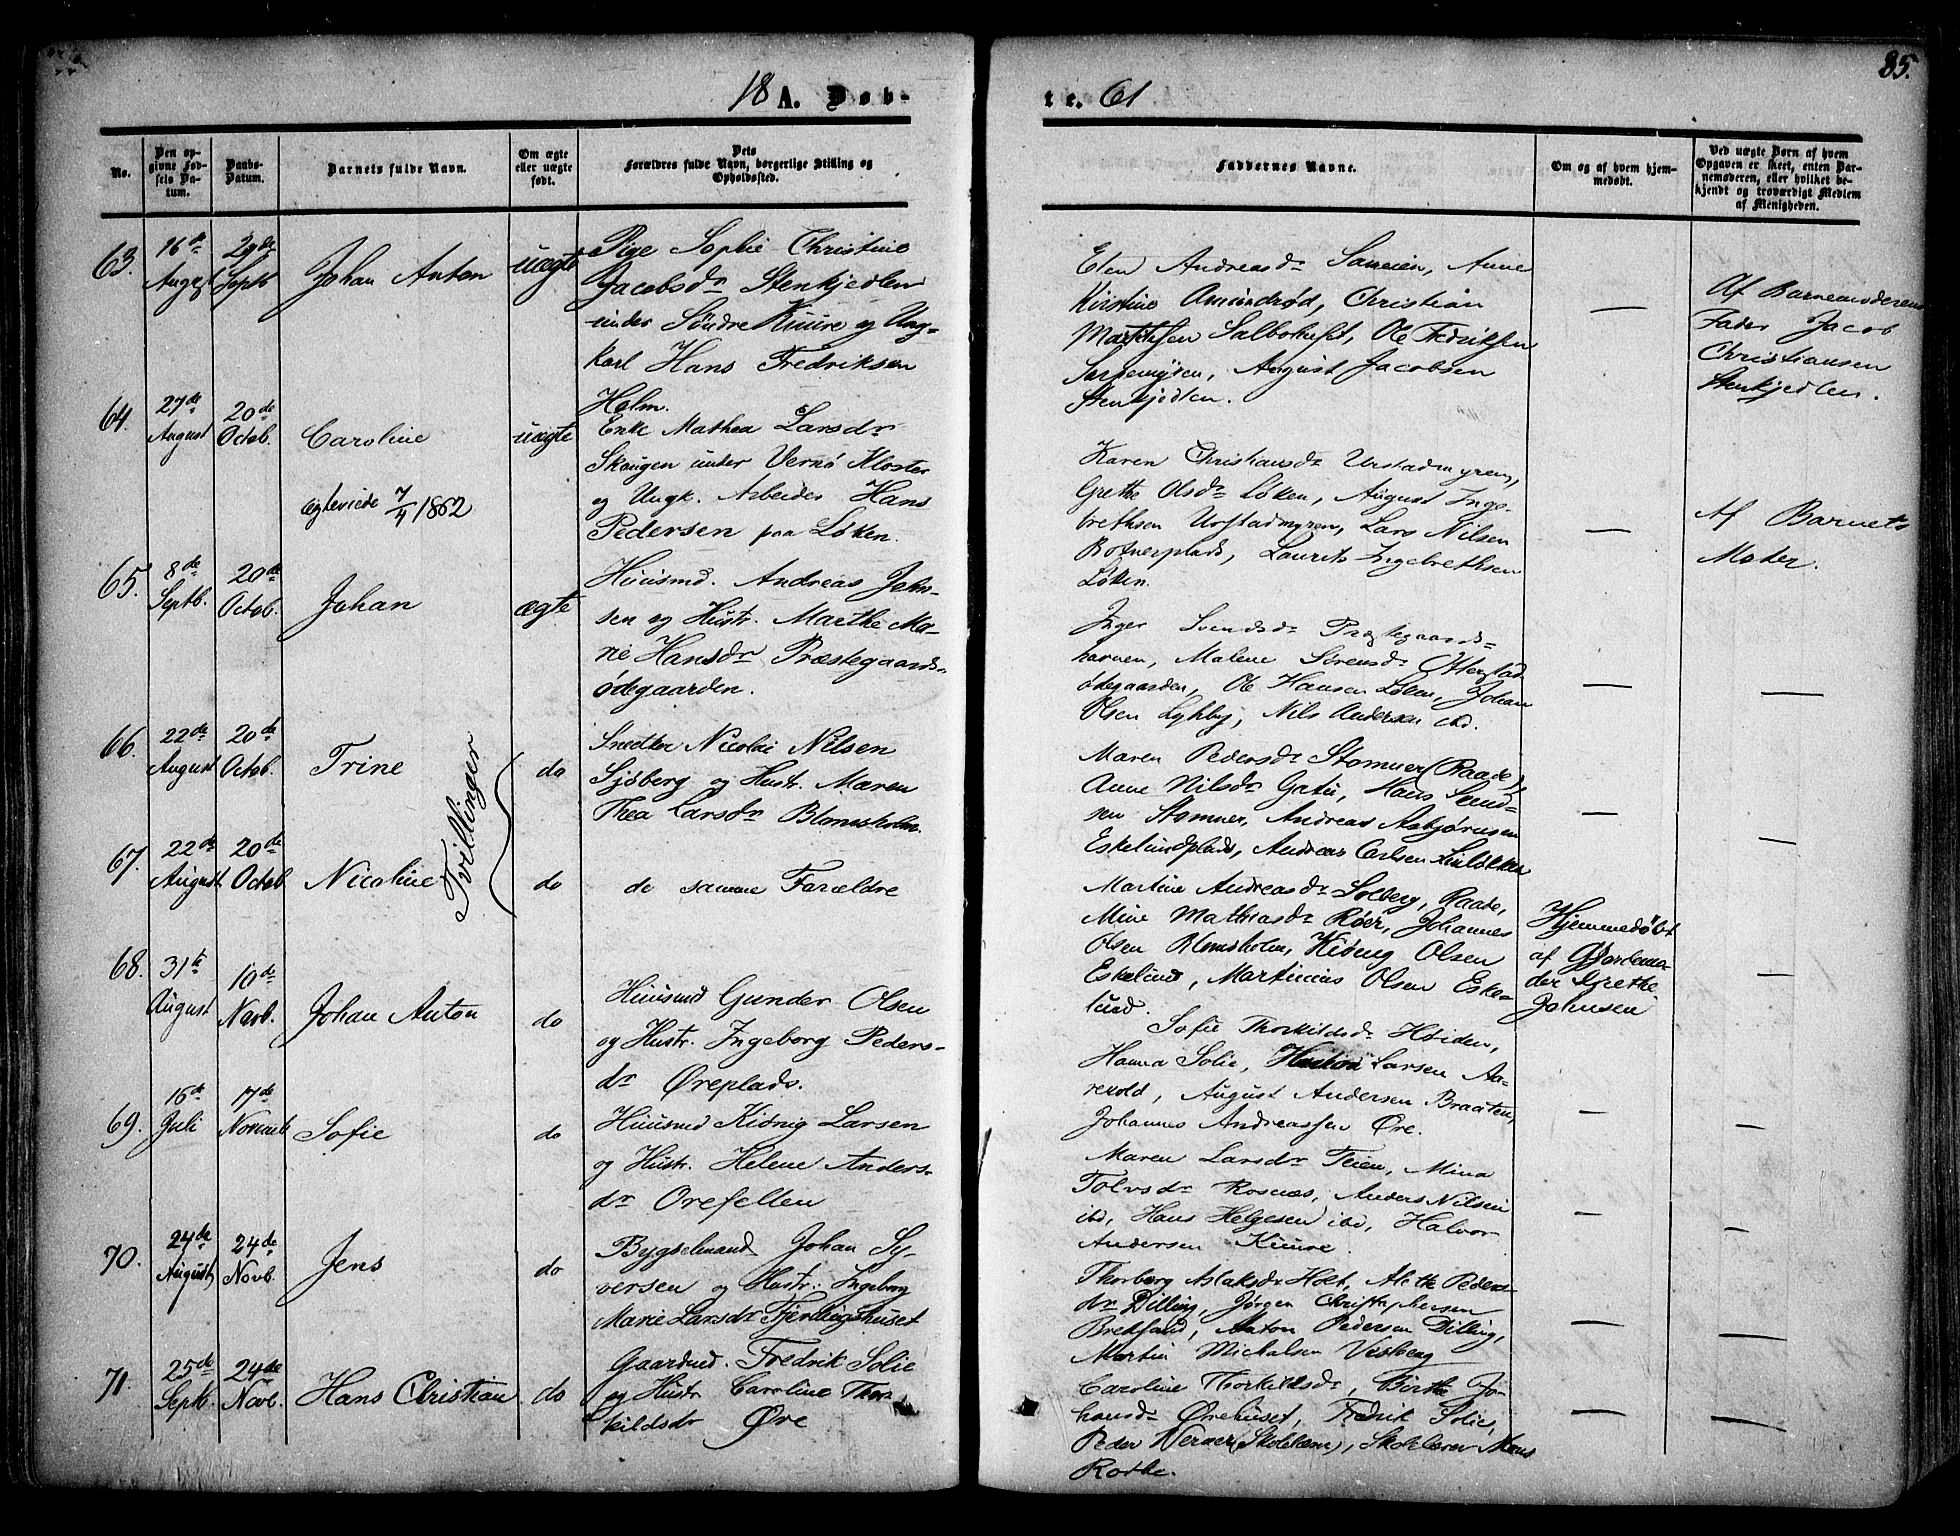 85.
18 A. Døb-
te. 61
No.
Den op-
givne Fød-
sels Da-
tum.
Daabs-
Datum.
Barnets fulde Navn.
Om ægte
eller uægte
født.
Dets
Forældres fulde Navn, borgerlige Stilling og
Opholdssted.
Faddernes Navne.
Om og af hvem hjem-
medøbt.
Ved uægte Børn af hvem
Opgaven er skeet, enten Bar-
nemoderen, eller hvilket be-
kjendt og troværdigt Medlem
af Menigheden.
63.
16de
August
29de
Septb
Johan Anton
uægte
Pige Sophie Christine
Jacobsdr Stenkjedlen
under Søndre Kuure og Ung-
karl Hans Fredriksen
Holm.
Elen Andreasdr Anne
Kirstine Amundrød, Christian
Mathisen Ole Fredriksen
August Jacobsen
Stenkjedlen.
—
Af Barnemoderens
Fader Jacob
Christiansen
Stenkjedlen.
64.
27de
August
20de
Octob.
Caroline
ægteviede 7/4 1862
uægte
Enke Mathea Larsdr
Skougen under Vernø Kloster
og Ungk. Arbeider Hans
Pedersen paa Løken.
Karen Christiansdr Urstadmyren,
Grethe Olsdr Løken, August Inge-
brethsen Urstadmyren, Lars Nilsen
Laurits Ingebrethsen
Løken.
—
Af Barnets
Moder.
65.
8de
Septb.
20de
Octob.
Johan
ægte
Huusmd. Andreas John-
sen og Hustr. Marthe Ma-
rie Hansdr Præstegaards-
ødegaarden.
Inger Svendsdr Præstegaards-
havnen, Malene Sørensdr Otterstad
ødegaarden, Ole Hansen Løken, Johan
Olsen Lykby, Nils Andersen ibd.
—
—
66.
22de
August
20de
Octob.
Trine
Tvillinger
do
Snedker Nicolai Nilsen
Sjøberg og Hustr. Maren
Thea Larsdr Blomsholm.
Maren Pedersdr Stomner (Raade),
Anne Nilsdr Gatu, Hans Svend-
sen Stomner, Andreas Asbjørnsen
Eskelundplads, Andreas Carlsen Linløkken
—
—
67.
22de
August
20de
Octob
Nicoline
do
de samme Forældre
Martine Andreasdr Solberg, Raade,
Mine Mathiasdr Røer, Johannes
Olsen Blomsholm, Kiønig Olsen
Eskelund, Martinius Olsen Eske-
lund.
Hjemmedøbt
af Gjordemo-
der Grethe
Johnsen
—
68.
31te
August
10de
Novb.
Johan Anton
do
Huusmd Gunder Olsen
og Hustr. Ingeborg Peders-
dr Øreplads.
Sofie Thorkildsdr Høiden,
Hanna Solie, Larsen Aa-
revold, August Andersen Braaten,
Johannes Andreassen Øre.
—
—
69.
16de
Juli
17de
Novemb
Sofie
do
Huusmd Kiønig Larsen
og Hustr. Helene Anders-
dr Orefelten
Maren Larsdr Teien, Mina
Tolvsdr Rosnæs, Anders Nilsen
ibd, Hans Helgesen ibd, Halvor
Andersen Kuure.
—
—
70.
24de
August
24de
Novb.
Jens
do
Bygselmand Johan Sy-
versen og Hustr. Ingeborg
Marie Larsdr Fjerdingshuset
Thorborg Aslaksdr Hoel, Alethe Peders-
dr Dilling, Jørgen Christophersen
Breksand, Anton Pedersen Dilling,
Martin Michalsen Vesberg
—
—
71.
25de
Septb.
24de
Novb.
Hans Christian
do
Gaardmd. Fredrik Solie
og Hustr Caroline Thor-
kildsdr Øre
Caroline Thorkildsdr, Birthe Jo-
hansdr Ørehuset, Fredrik Solie,
Peder Werner (Skolelærer), Skolelærer Hans
Rothe.
—
—